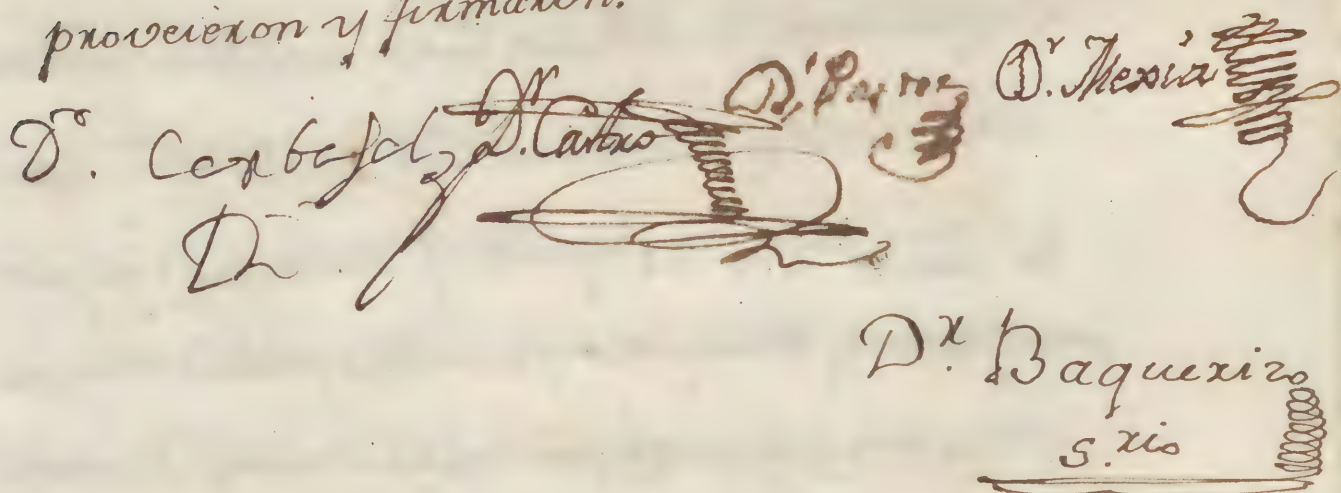 proveieron y firmaron.
Dr. Carbajal Dr. Castro Dr. Mexia
Dr. Baqueriz
s.rio